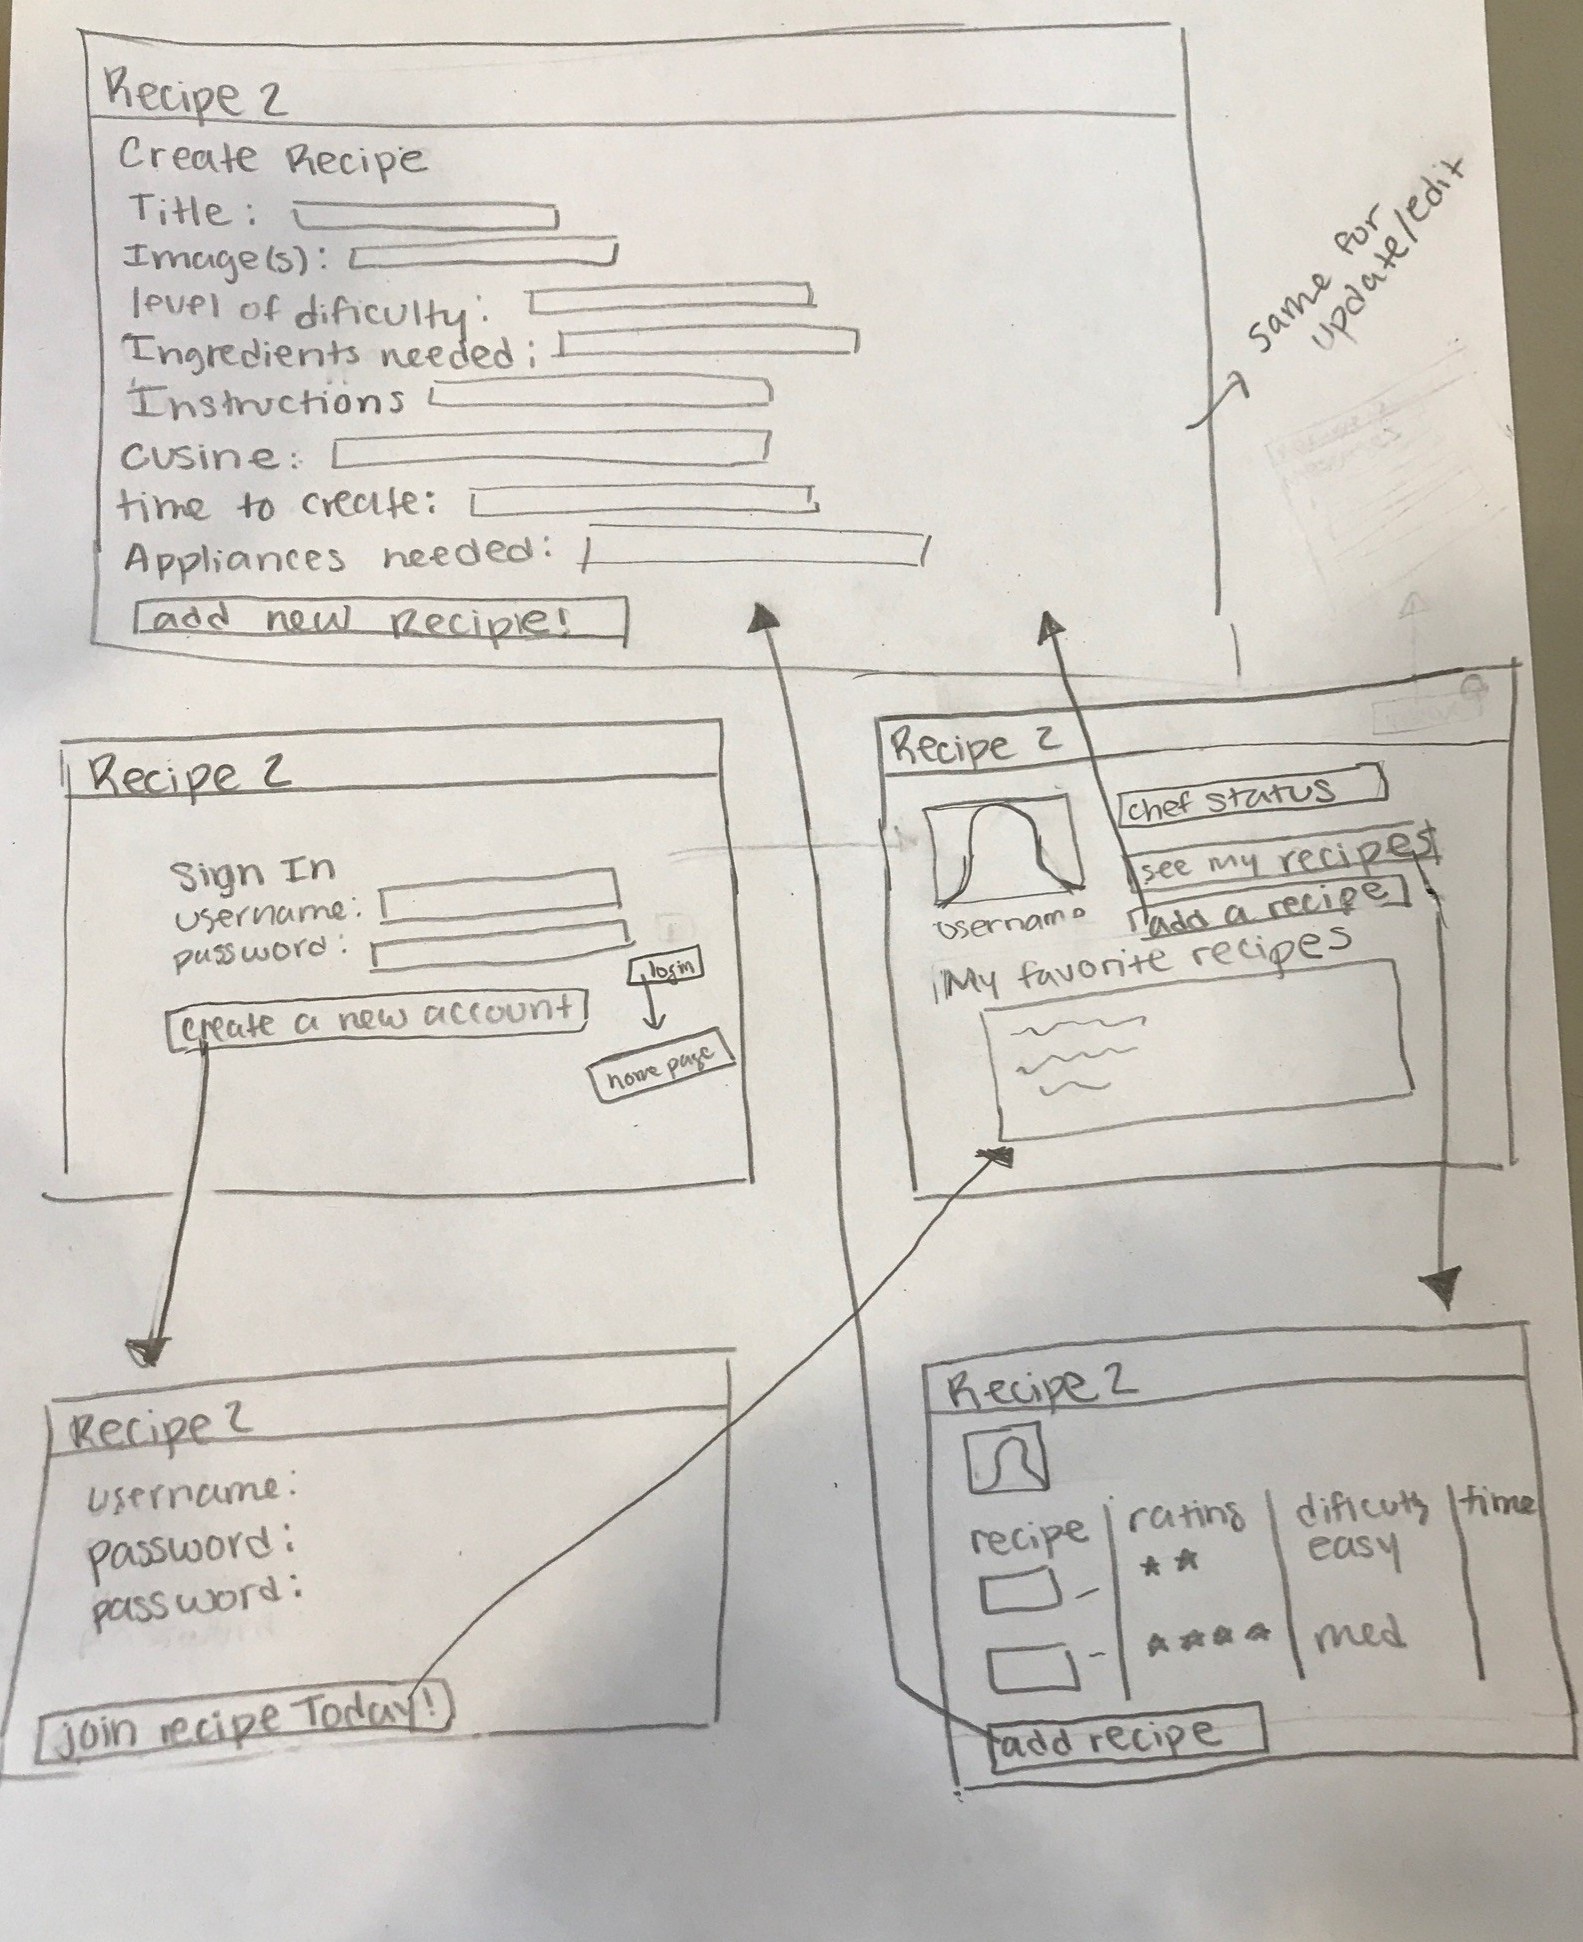 Recipe 2
Create Recipe
Title:
Image(s):
level of dificulty:
Ingredients needed:
Instructions
cusine:
time to create:
Appliances needed:
add new Recipie!
same for
update/edit
Recipe 2
Sign In
username:
password:
login
create a new account
home page
Recipe 2
chef status
see my recipes
add a recipe
username
My favorite recipes
Recipe 2
username:
password:
password:
join recipe Today!
Recipe 2
recipe rating dificulty time
easy
med
add recipe